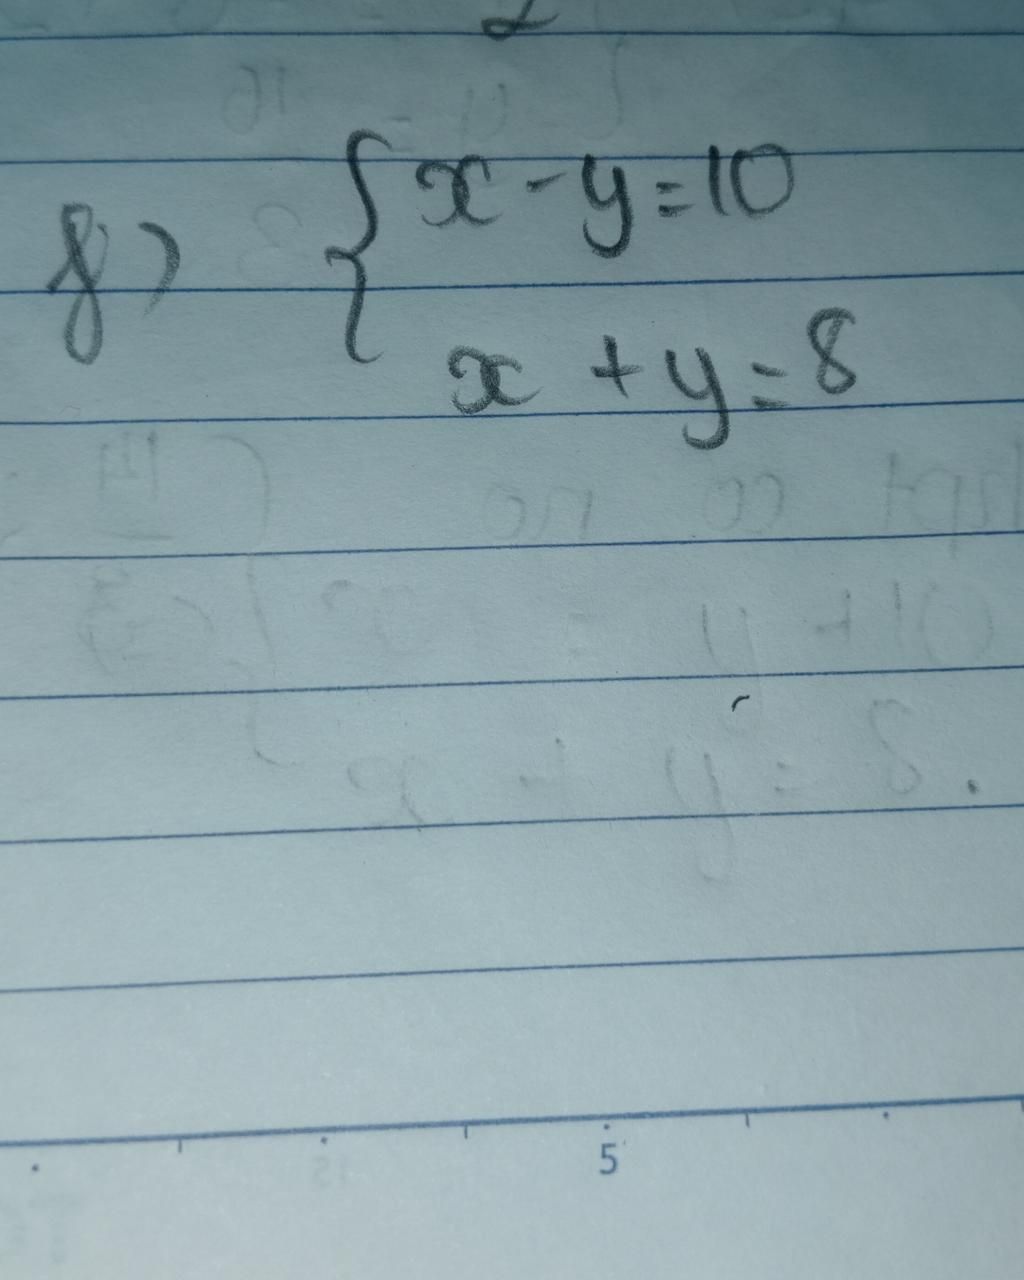 f) { x - y = 10
x + y = 8
5